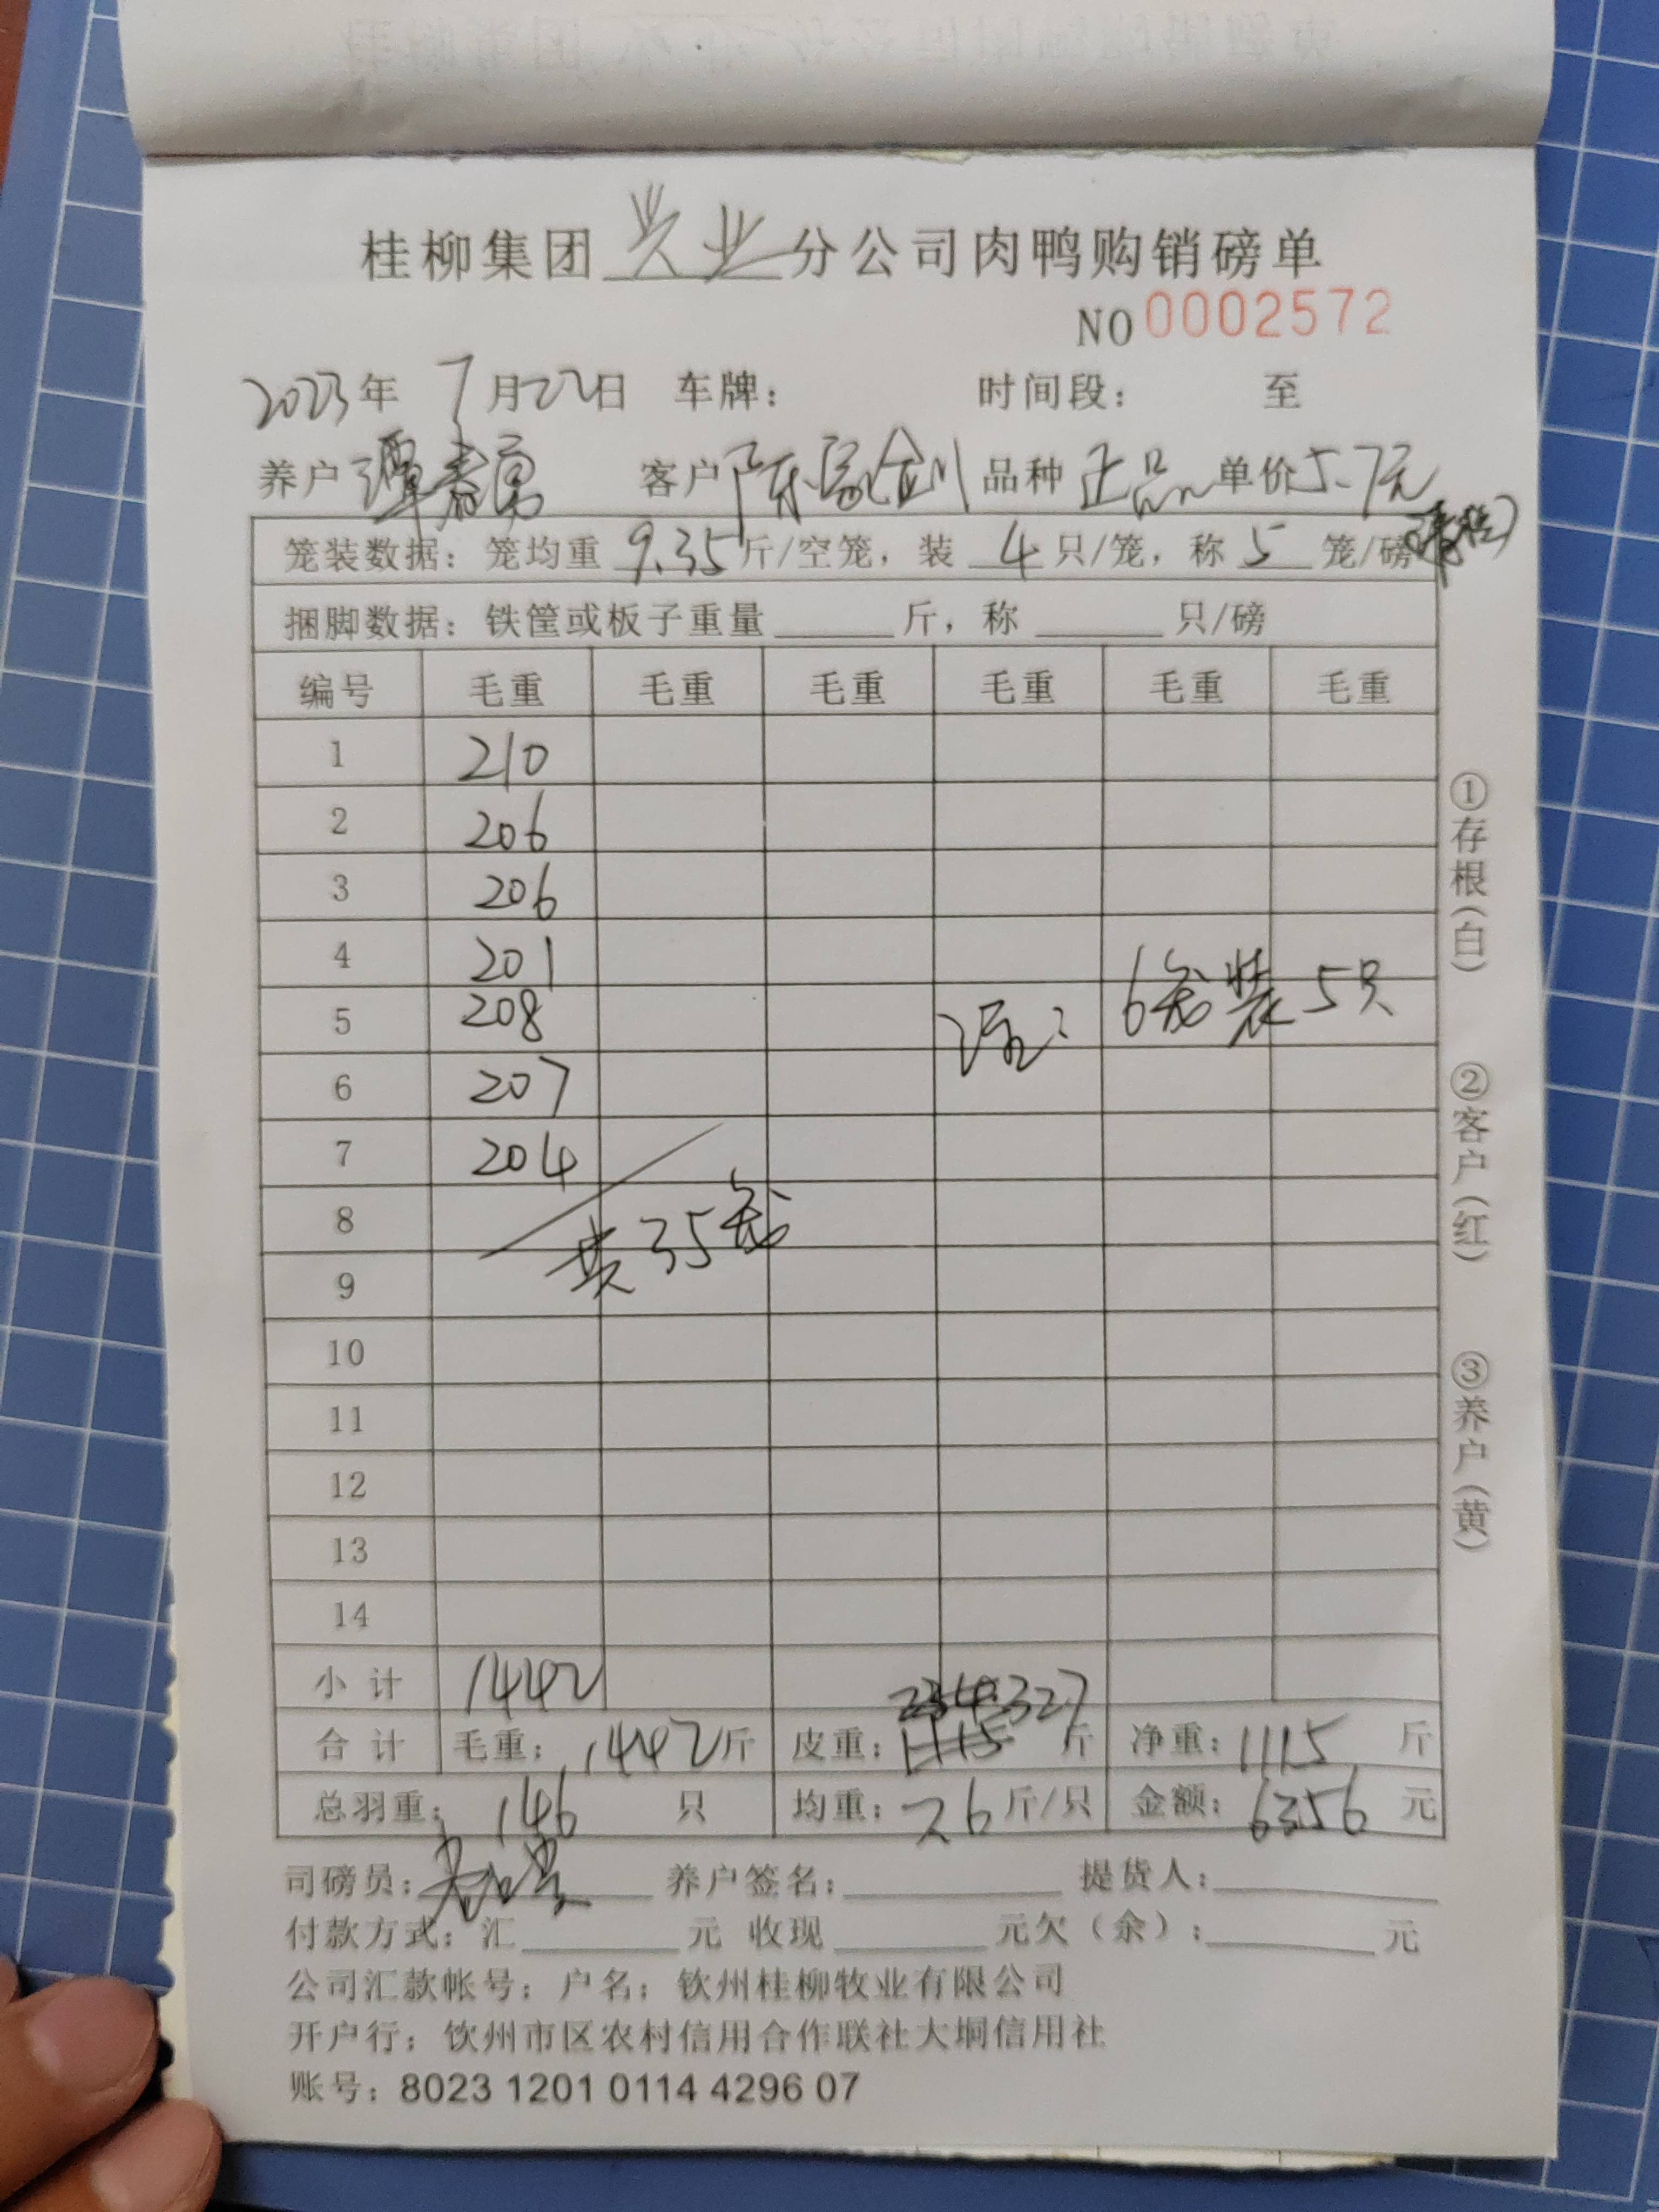 桂柳集团兴业分公司肉鸭购销磅单
NO 0002572
2023年 7月22日 车牌： 时间段： 至
养户 谭春勇 客户 陈家剑 品种 正品 单价5.7元
笼装数据：笼均重 9.35 斤/空笼，装 4 只/笼，称 5 笼/磅
捆脚数据：铁筐或板子重量 斤，称 只/磅
编号 毛重 毛重 毛重 毛重 毛重 毛重
1 210
2 206
3 206
4 201
5 208
注： 6笼装5只
6 207
7 204
8
共35笼
9
10
11
12
13
14
小计 1442
合计 毛重：1442斤 皮重：327 斤 净重：1115 斤
总羽重：146 只 均重：7.6 斤/只 金额：6356 元
司磅员： 养户签名： 提货人：
付款方式：汇 元 收现 元欠（余）： 元
公司汇款帐号：户名：钦州桂柳牧业有限公司
开户行：钦州市区农村信用合作联社大垌信用社
账号：8023 1201 0114 4296 07
①存根（白） ②客户（红） ③养户（黄）